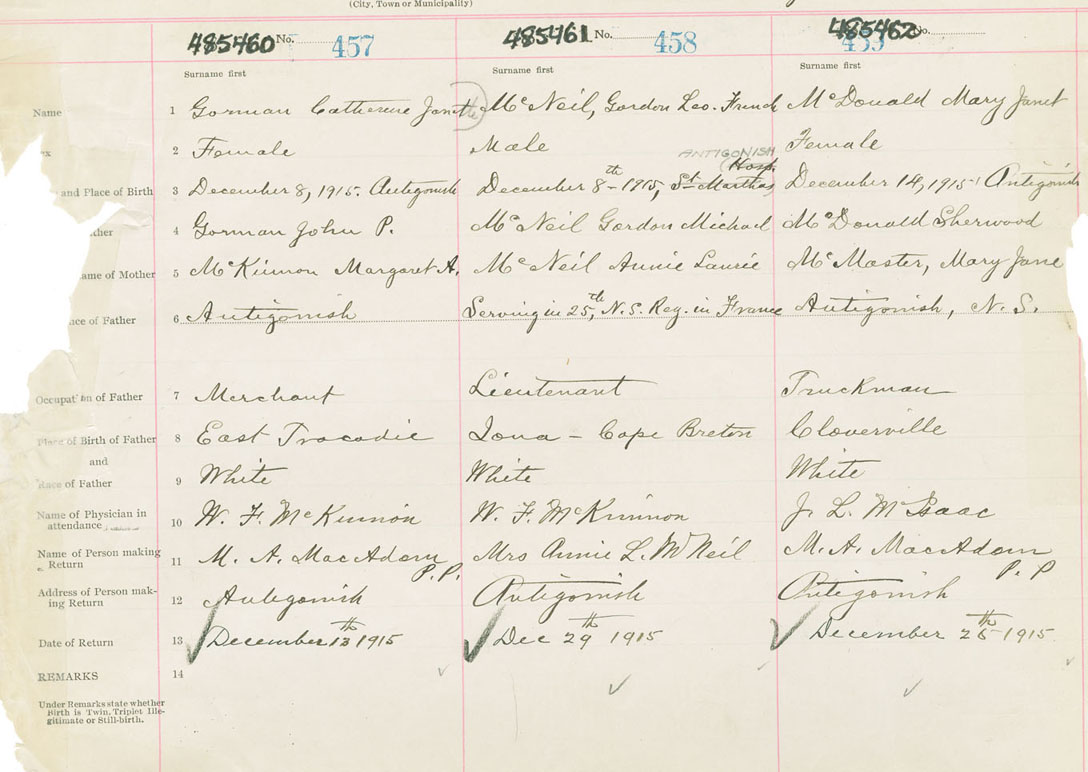 (City, Town or Municipality)
485460 No. 457 485461 No. 458 485462 No. 459
Surname first Surname first Surname first
Name 1 Gorman Catherine Janet McNeil, Gordon Leo. French McDonald Mary Janet
ex 2 Female Male Female
ANTIGONISH
Hosp.
and Place of Birth 3 December 8, 1915. Antigonish December 8th 1915, St Marthas December 14, 1915 Antigonish
ther 4 Gorman John P. McNeil Gordon Michael McDonald Sherwood
ame of Mother 5 McKinnon Margaret A. McNeil Annie Laurie McMaster, Mary Jane
nce of Father 6 Antigonish Serving in 25th, N.S. Reg. in France Antigonish, N.S.
Occupation of Father 7 Merchant Lieutenant Truckman
Place of Birth of Father 8 East Tracadie Iona - Cape Breton Cloverville
and
Race of Father 9 White White White
Name of Physician in
attendance 10 W. F. McKinnon W. F. McKinnon J. L. McIsaac
Name of Person making
Return 11 M. A. MacAdam P.P. Mrs Annie L. McNeil M. A. MacAdam P.P
Address of Person mak-
ing Return 12 Antigonish Antigonish Antigonish
Date of Return 13 December 13th 1915 Dec 29th 1915 December th 1915
REMARKS 14
Under Remarks state whether
Birth is Twin, Triplet Ille-
gitimate or Still-birth.